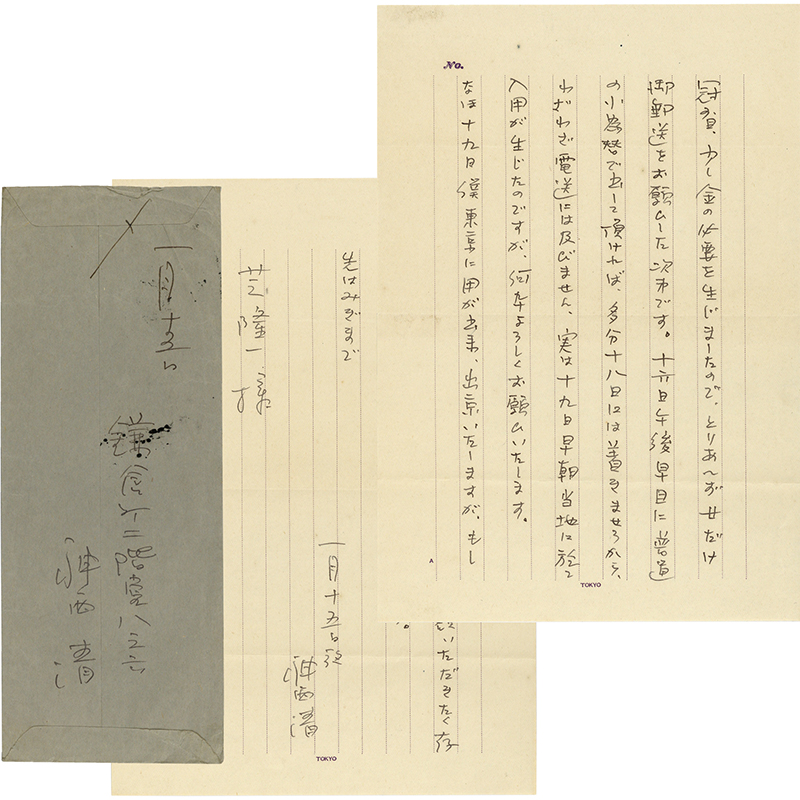 No.
冠省、少し金の必要を生じましたので、とりあへず廿だけ
御郵送をお願ひした次第です。十六日午後早目に普通
の小為替で出して頂ければ、多分十八日には着きませうから、
わざわざ電送には及びません、実は十九日早朝当地に於て
入用が生じたのですが、何卒よろしくお願ひいたします。
なほ十九日僕東京に用が出来、出京いたしますが、もし
A
TOKYO
いただきたく存
先はみぎまで
一月十五日夜
神西清
芝隆一様
TOKYO
一月十五日
鎌倉 二階堂八之六
神西清